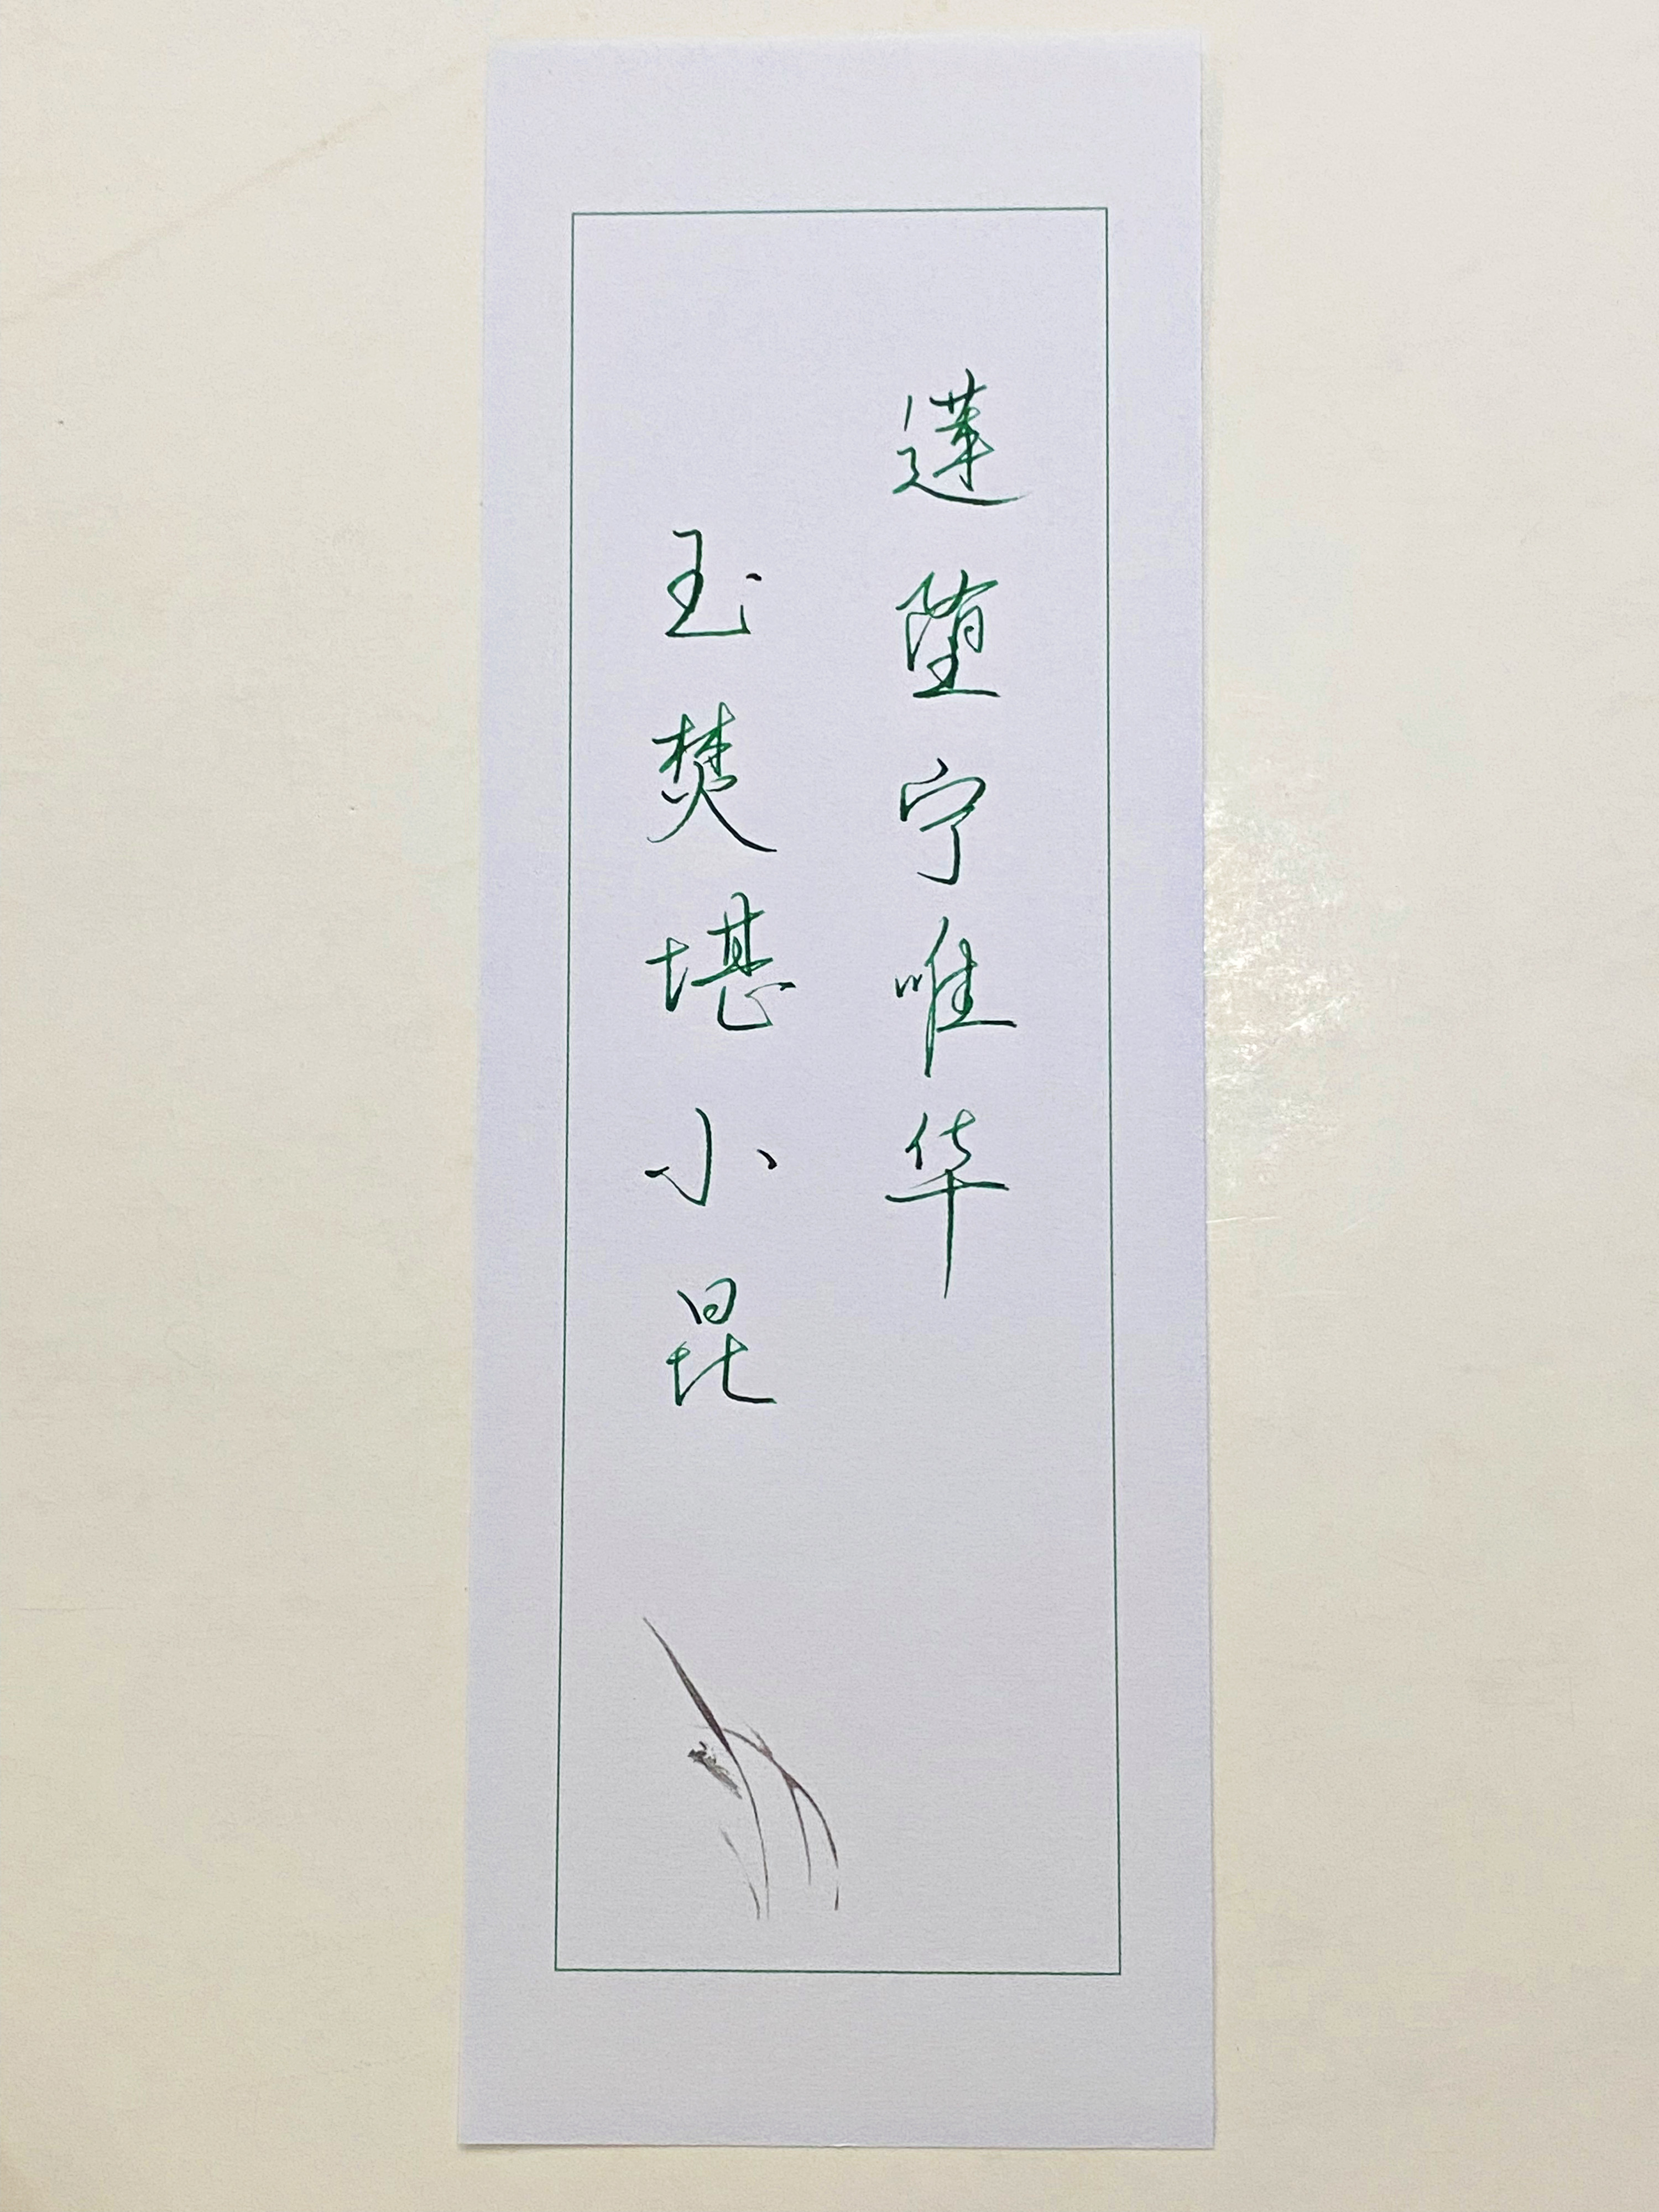 莲堕宁唯华
玉焚堪小昆